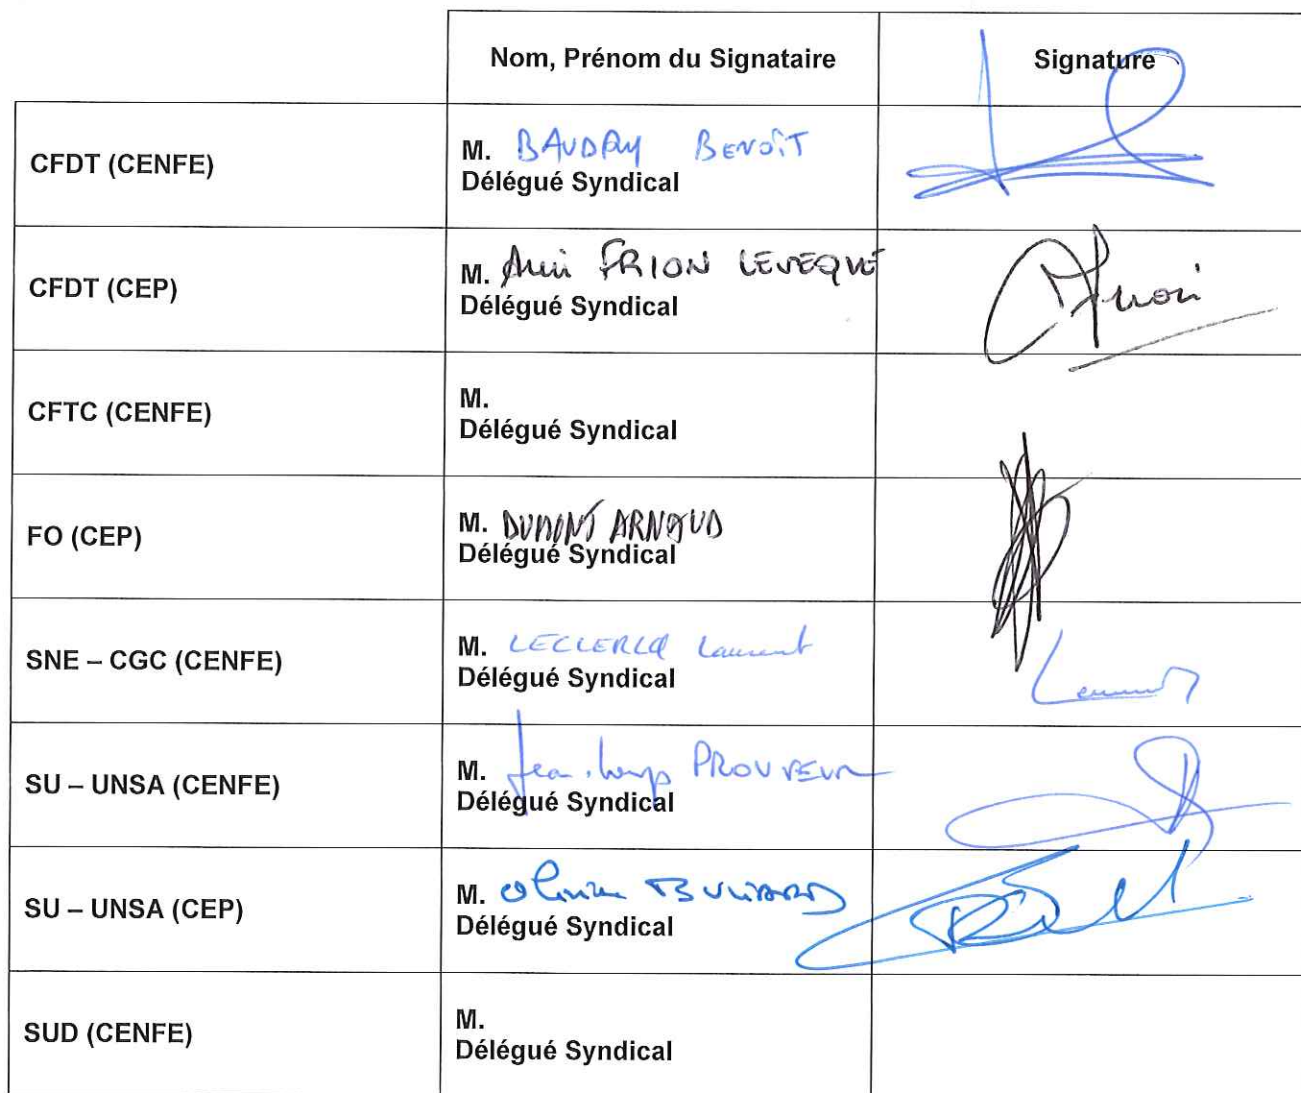 Nom, Prénom du Signataire
Signature
CFDT (CENFE)
M. BAUDRY BENOÎT
Délégué Syndical
CFDT (CEP)
M. FRION LEVEQUE
Délégué Syndical
CFTC (CENFE)
M.
Délégué Syndical
FO (CEP)
M. DUMONT ARNAUD
Délégué Syndical
SNE – CGC (CENFE)
M. LECLERCQ Laurent
Délégué Syndical
SU – UNSA (CENFE)
M. PROUVEUR
Délégué Syndical
SU – UNSA (CEP)
M. Olivier BULIARD
Délégué Syndical
SUD (CENFE)
M.
Délégué Syndical